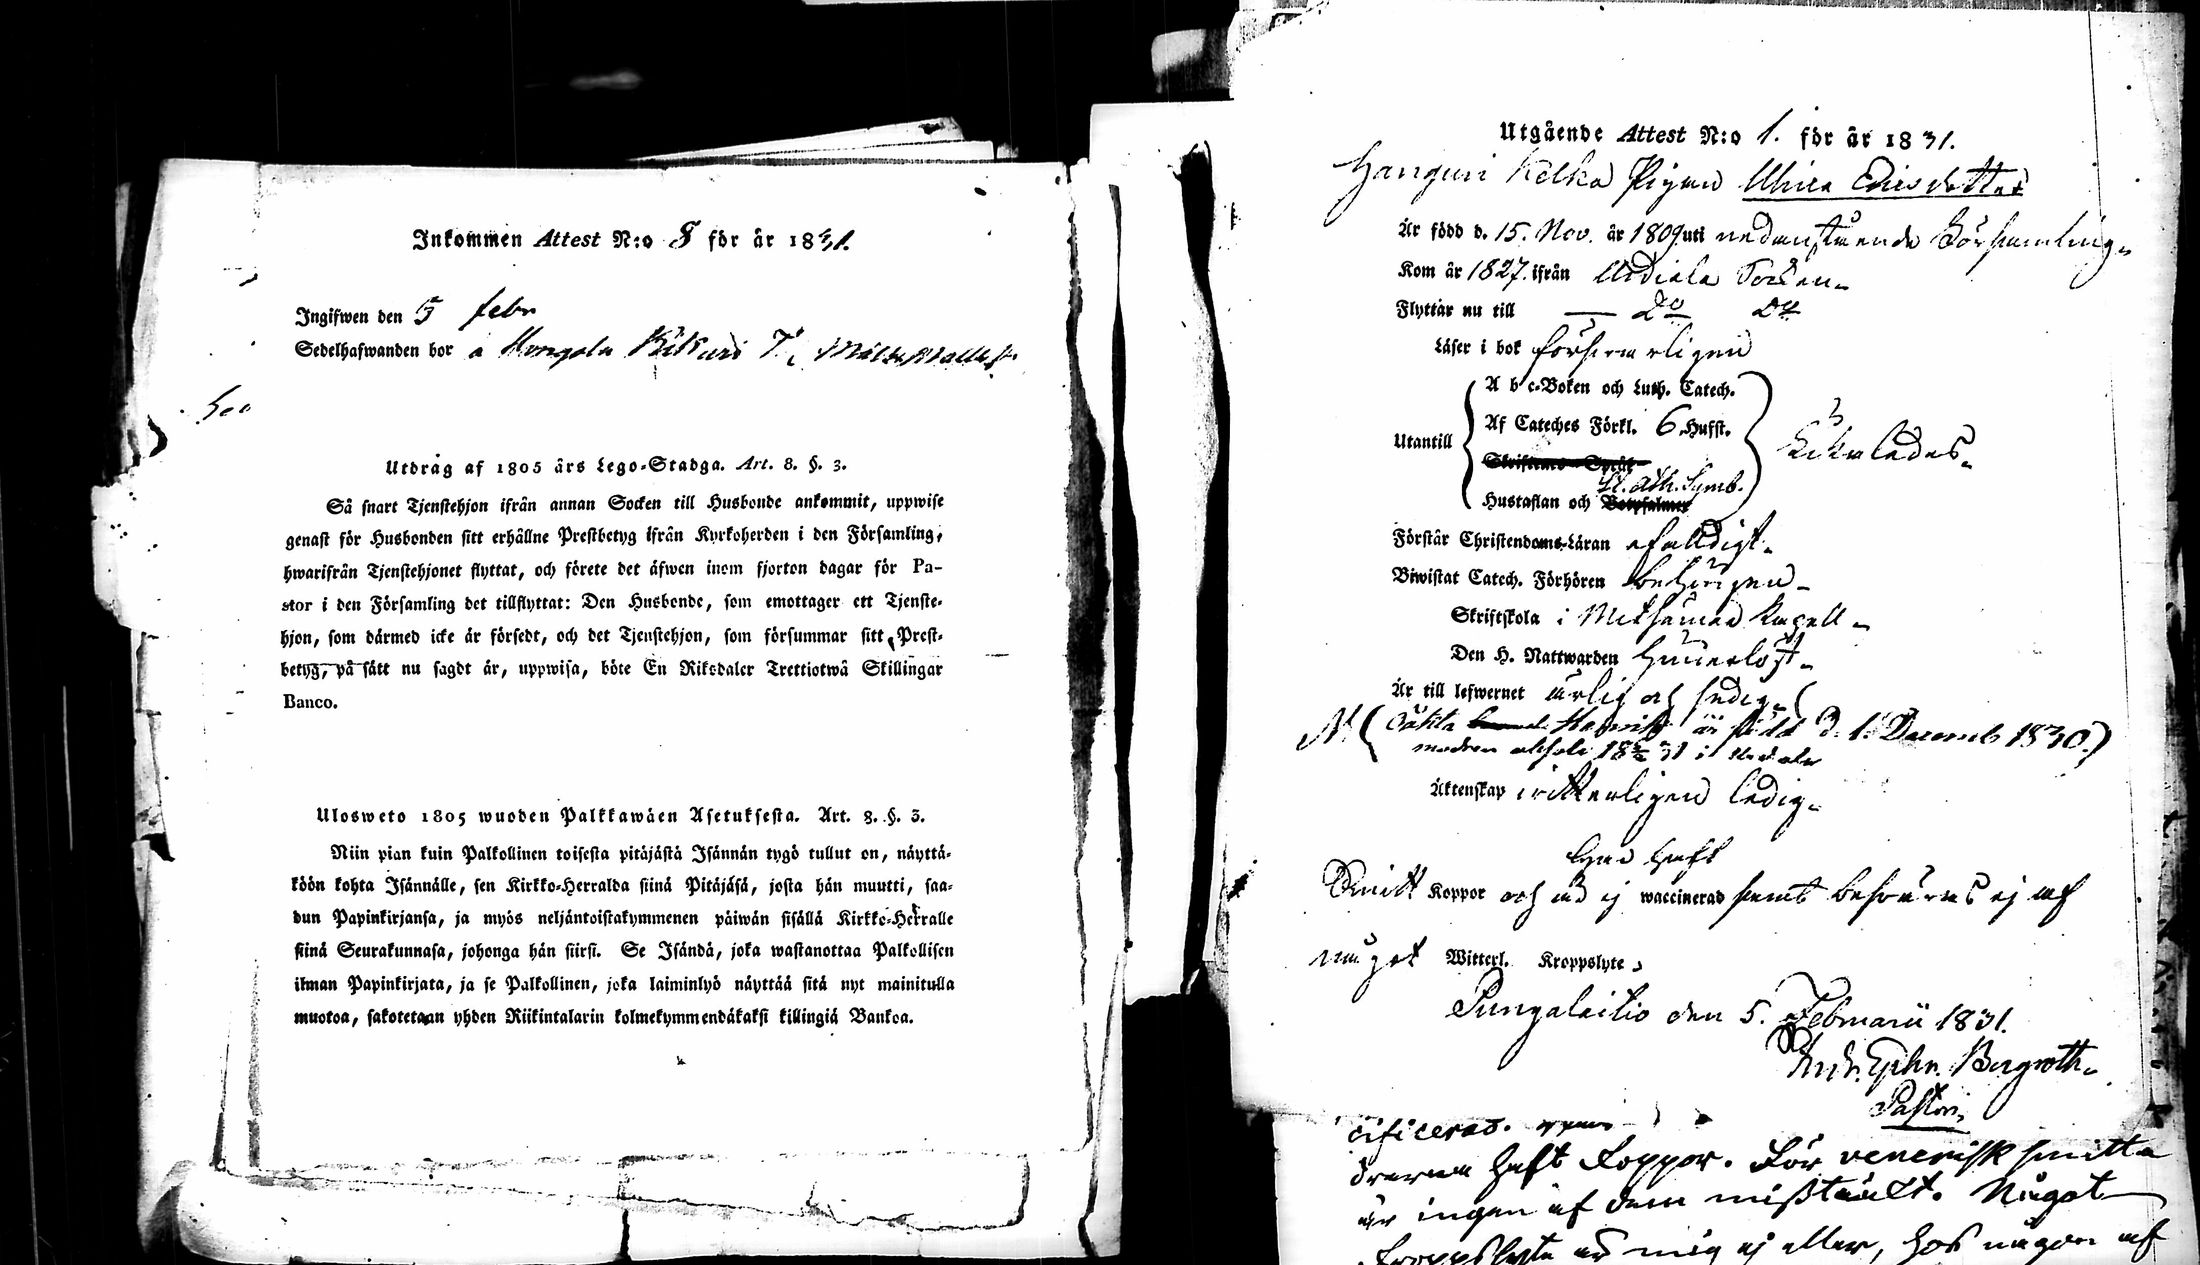 Inkommen Attest N:o 8 för år 1831.
Ingifwen den 5 febr
Sedelhafwanden bor å Mongola
Utdrag af 1805 års Lego-Stadga. Art. 8. §. 3.
Så snart Tjenstehjon ifrån annan Socken till Husbonde ankommit, uppwise
genast för Husbonden sitt erhållne Prestbetyg ifrån Kyrkoherden i den Församling,
hwarifrån Tjenstehjonet flyttat, och förete det äfwen inom fjorton dagar för Pa-
stor i den Församling det tillflyttat: Den Husbonde, som emottager ett Tjenste-
hjon, som därmed icke är försedt, och det Tjenstehjon, som försummar sitt Prest-
betyg, på sätt nu sagdt är, uppwisa, böte En Riksdaler Trettiotwå Skillingar
Banco.
Ulosweto 1805 wuoden Palkkawäen Asetuksesta. Art. 8. §. 3.
Niin pian kuin Palkollinen toisesta pitäjästä Isännän tygö tullut on, näyttä-
köön kohta Isännälle, sen Kirkko-Herralda siinä Pitäjäsä, josta hän muutti, saa-
dun Papinkirjansa, ja myös neljäntoistakymmenen päiwän sisällä Kirkko-Herralle
siinä Seurakunnasa, johonga hän siirsi. Se Isändä, joka wastanottaa Palkollisen
ilman Papinkirjata, ja se Palkollinen, joka laiminlyö näyttää sitä nyt mainitulla
muotoa, sakotetaan yhden Riikintalarin kolmekymmendäkaksi killingiä Bankoa.
Utgående Attest N:o 1. för år 1831.
Pigan Ulrica Ericsdotter
Är född d. 15. Nov. år 1809 uti nedanstående Församling.
Kom år 1827. ifrån Urdiala Socken.
Flyttar nu till — Do Do
Läser i bok försvarligen
Utantill
A b c-Boken och Luth. Catech.
Af Cateches Förkl. 6 Hufst.
St. Ath. Symb.
Hustaflan och
Förstår Christendoms-Läran enfalldigt.
Biwistat Catech. Förhören behörigen
Skriftskola i Metsämaa Kapell
Den H. Nattwarden
Är till lefwernet ärlig och sedig.
är född d. 1. Decemb 1830.)
Äktenskap witterligen ledig.
haft
Koppor och är ej waccinerad samt besväras ej af
något Witterl. Kroppslyte.
Pungalaitio den 5. Februarii 1831.
And. Ephr. Bergroth.
Pastor.
haft koppor. För venerisk smitta
är ingen af dem misstänkt. Något
Kroppslyte är mig ej eller, hos någon af